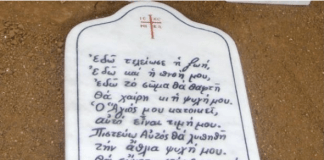 ΙΣ ΧΣ
ἐδῶ τελείωσε ἡ ζωή,
ἐδῶ καί ἡ πνοή μου,
ἐδῶ τό σῶμα θά θαφτῆ
θά χαίρη κι ἡ ψυχή μου.
Ὁ Ἅγιός μου κατοικεῖ,
αὐτό εἶναι τιμή μου.
Πιστεύω Αὐτός θά λυπηθῆ
τήν ἄθλια ψυχή μου.